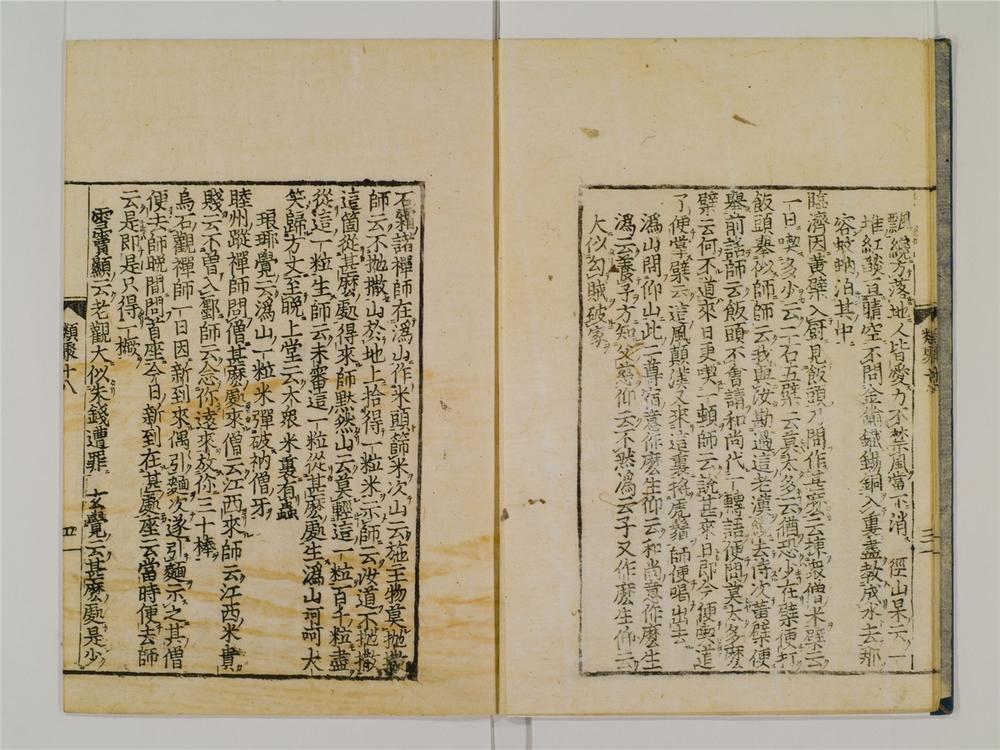 飄纔方落地人皆愛力不禁風當下消　徑山杲云一
堆紅燄亘晴空不問金鍮鐵錫銅入裏盡教成水去那
容蚊蚋泊其中
臨濟因黃檗入廚見飯頭乃問作甚麼云揀衆僧米檗云
一日喫多少云二石五檗云莫太多云猶恐少在檗便打
飯頭舉似師師云我與汝勘過這老漢纔去侍次黃檗便
舉前話師云飯頭不會請和尚代一轉語便問莫太多麼
檗云何不道來日更喫一頓師云說甚來日即今便喫道
了便掌檗云這風顛漢又來這裏捋虎鬚師便喝出去
溈山問仰山此二尊宿意作麼生仰云和尚意作麼生
溈云養子方知父慈仰云不然溈云子又作麼生仰云
大似勾賊破家
類聚十八
三
石霜諸禪師在溈山作米頭篩米次山云施主物莫拋撒
師云不拋撒山於地上拾得一粒米示師云汝道不拋撒
這箇從甚麼處得來師默然山云莫輕這一粒百千粒盡
從這一粒生師云未審這一粒從甚麼處生溈山呵呵大
笑歸方丈至晚上堂云大衆米裏有蟲
瑯琊覺云溈山一粒米彈破衲僧牙
睦州蹤禪師問僧甚麼處來僧云江西來師云江西米貴
賤云不曾入鄽師云念你遠來放你三十棒
烏石觀禪師一日因新到來偶引麵次遂引麵示之其僧
便去師晚間問首座今日新到在甚處座云當時便去師
云是即是只得一橛
雪竇顯云老觀大似失錢遭罪　玄覺云甚麼處是少
類聚十八
四